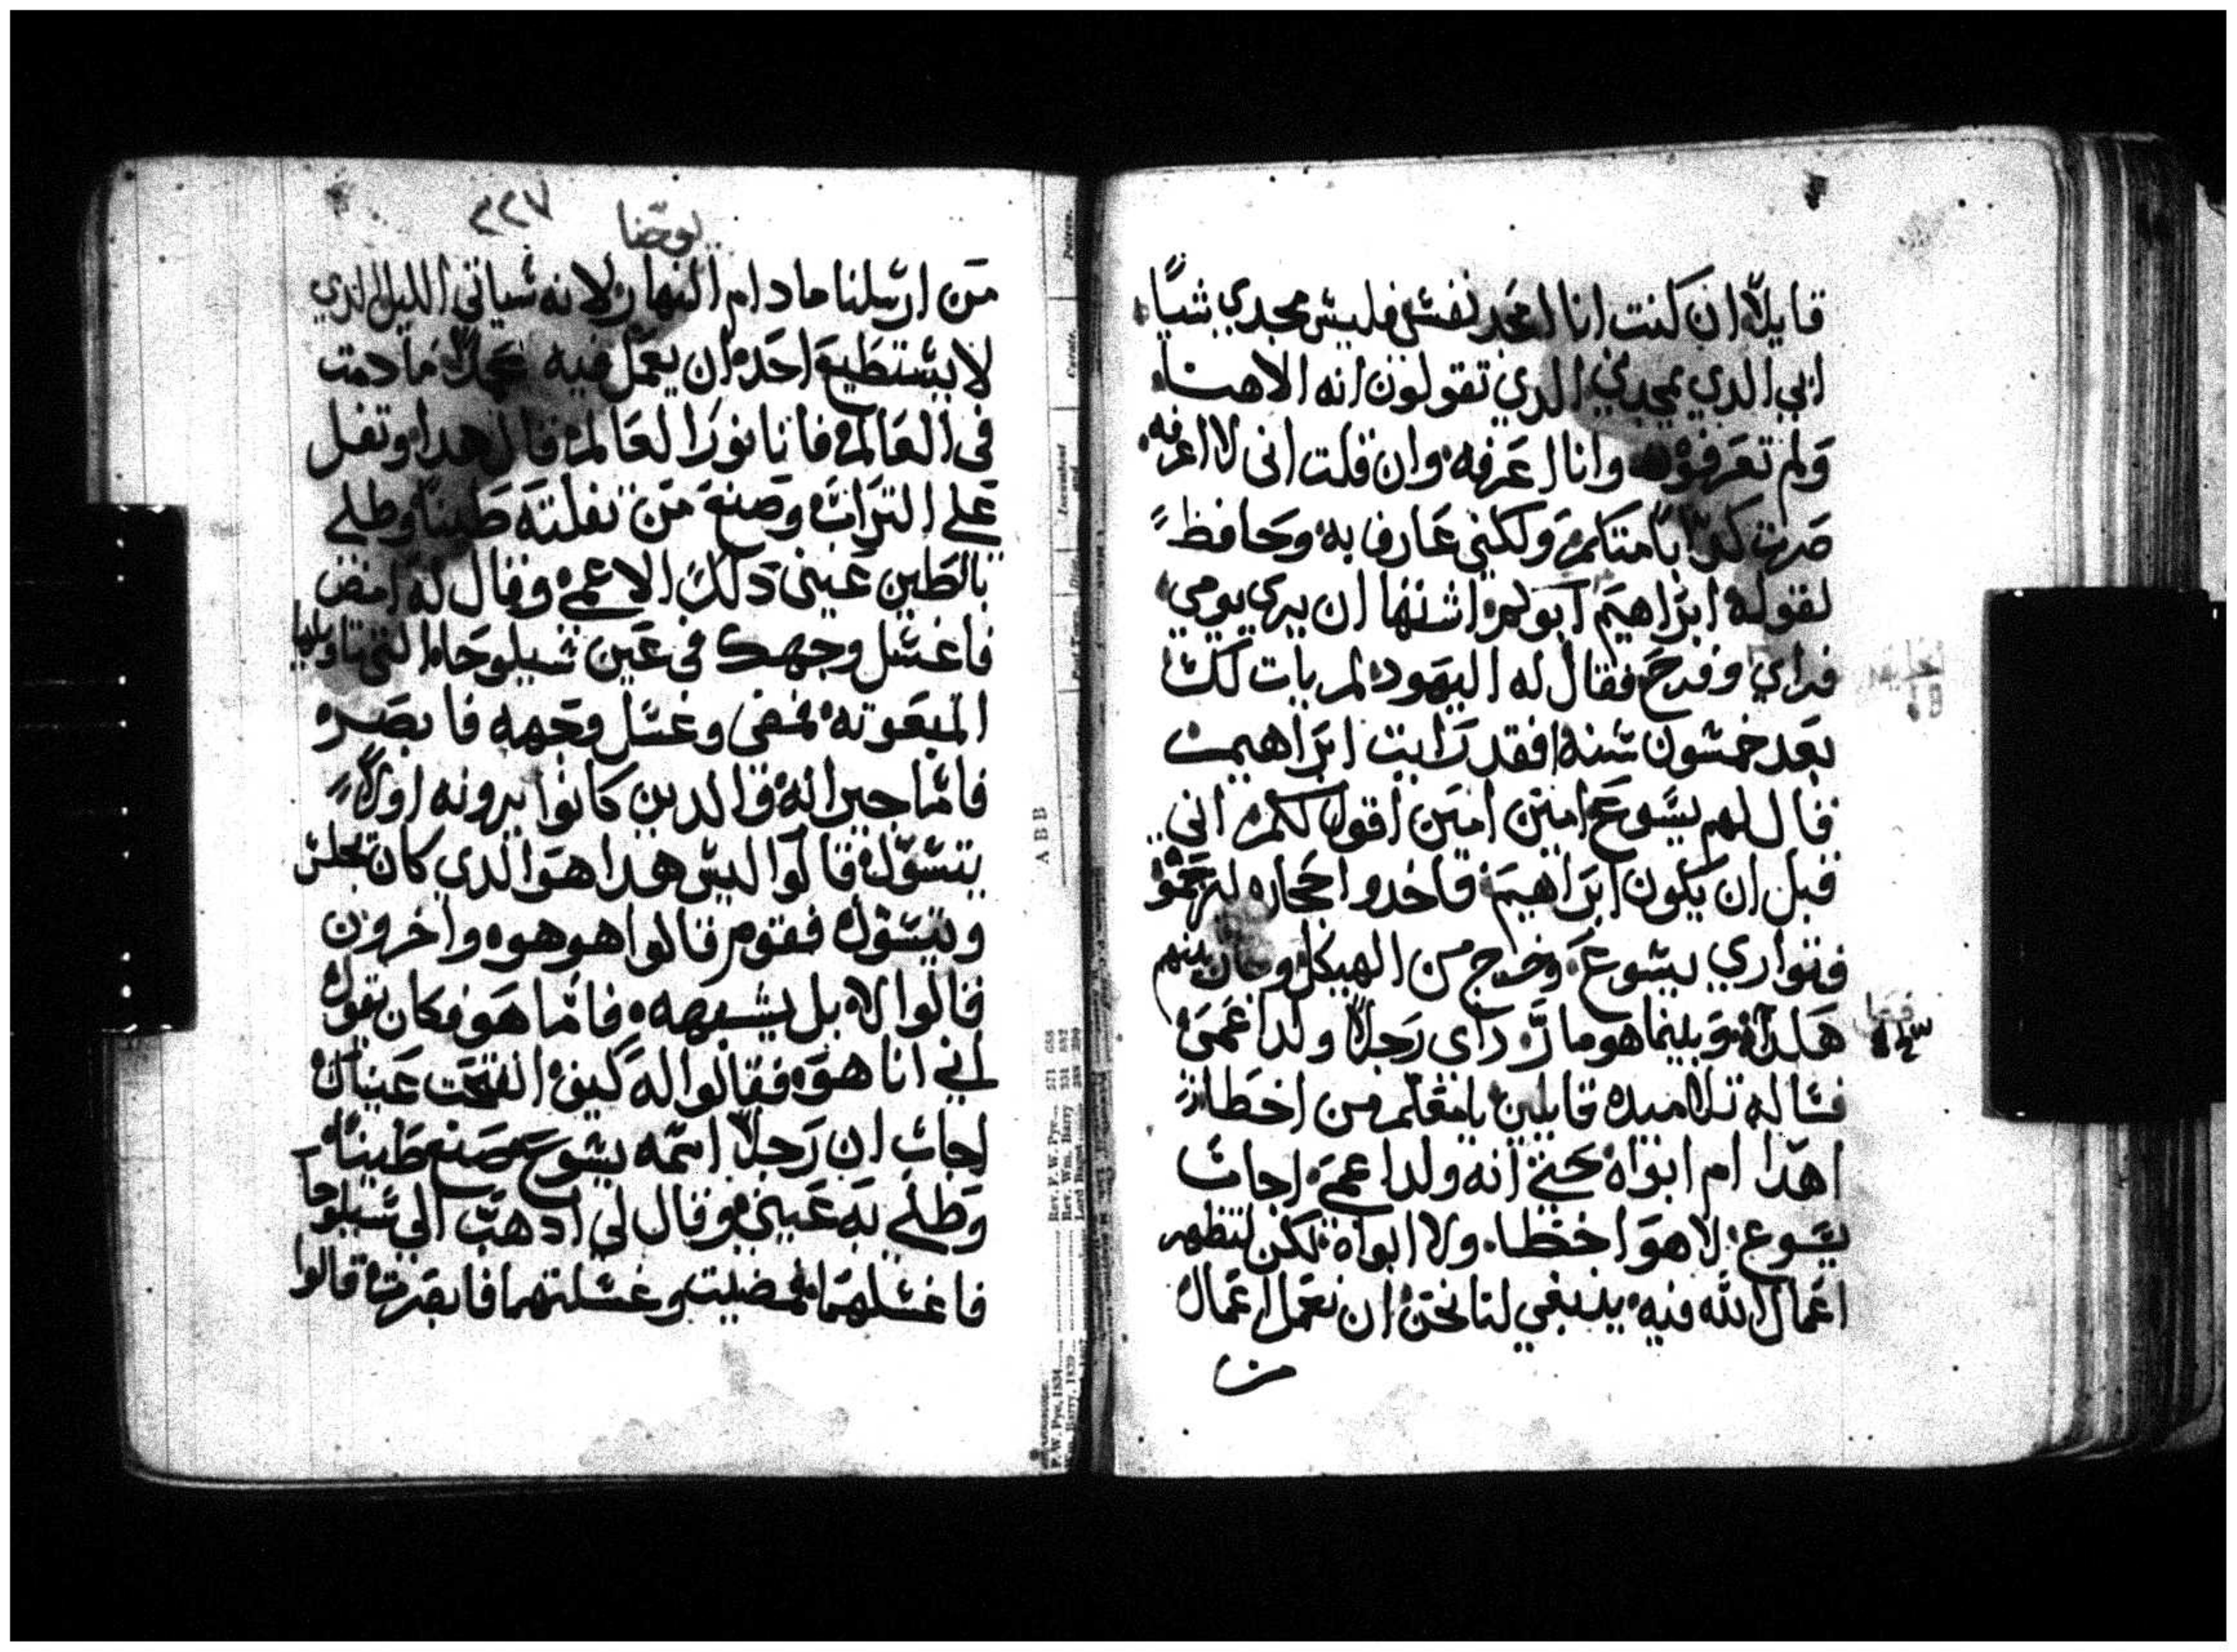 قايلاً ان كنت انا امجد نفسي فليس مجدي شياً
ابي الدي يمجدني الدي تقولون انه الاهنا
ولم تعرفوه وانا اعرفه وان قلت اني لا اعرفه
صرت كداباً متلكم ولكني عارف به وحافظ
لقوله ابراهيم ابوكم اشتها ان يري يومي
فراي وفرح فقال له اليهود لم يات لك
بعد خمسون سنه افقد رايت ابراهيم
قال لهم يسوع امين امين اقول لكم اني
قبل ان يكون ابراهيم فاخدوا حجاره ليرجموه
فتواري يسوع وخرج من الهيكل وجاز بينهم
هكدا وبينما هو مارّ راي رجلاً ولد اعمي
فساله تلاميده قايلين يا معلم من اخطا
اهدا ام ابواه حتي انه ولد اعمي اجاب
يسوع لا هو اخطا ولا ابواه لكن لتظهر
اعمال الله فيه ينبغي لنا نحن ان نعمل اعمال
من
يوحنا
٢٢٧
من ارسلنا ما دام النهار لانه سياتي الليل الدي
لا يستطيع احد ان يعمل فيه عملاً ما دمت
في العالم فانا نور العالم قال هدا وتفل
علي التراب وصنع من تفلته طيناً وطلي
بالطين عيني دلك الاعمي وقال له امض
فاغسل وجهك في عين سيلوحا التي تاويلها
المبعوته فمضي وغسل وجهه فابصر
فاما جيرانه والدين كانوا يرونه اولاً
يتسول قالوا اليس هدا هو الدي كان يجلس
ويتسول فقوم قالوا هو هو واخرون
قالوا لا بل يشبهه فاما هو فكان يقول
اني انا هو فقالوا له كيف انفتحت عيناك
اجاب ان رجلاً اسمه يسوع صنع طيناً
وطلي به عيني وقال لي ادهب الي سيلوحا
فاغسلهما فمضيت وغسلتهما فابصرت قالوا